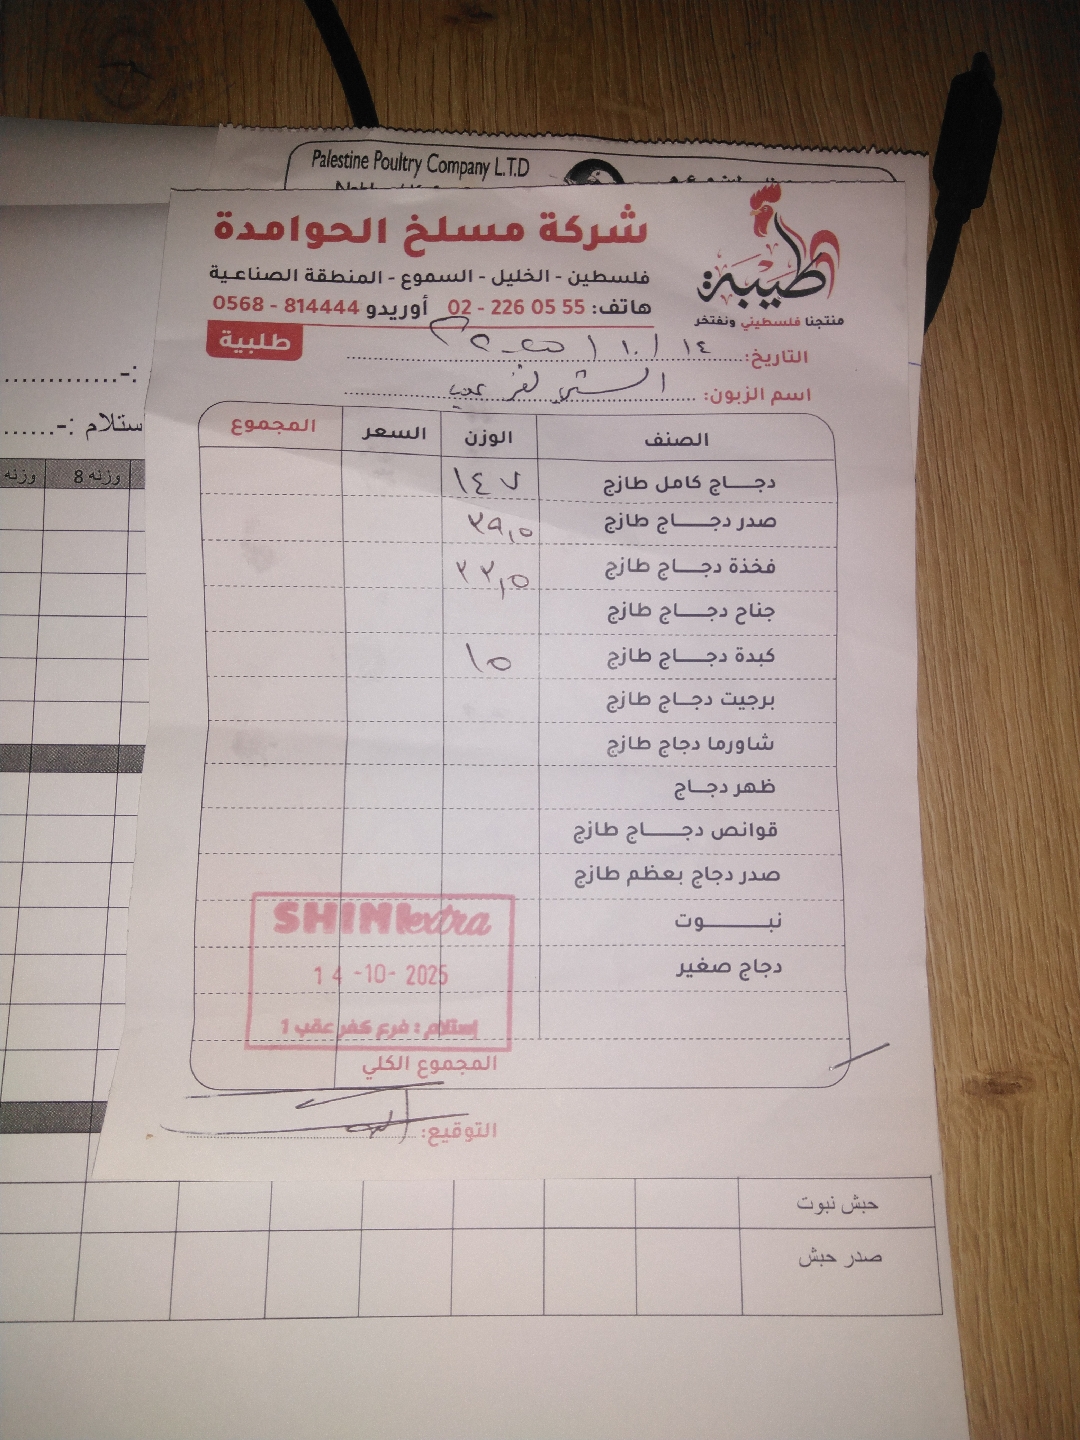 Palestine Poultry Company L.T.D
شركة مسلخ الحوامدة
فلسطين - الخليل - السموع - المنطقة الصناعية
هاتف: 55 05 226 - 02 أوريدو 814444 - 0568
طيبة
منتجنا فلسطيني ونفتخر
طلبية
التاريخ: ١٤ / ١٠ /
اسم الزبون: الشني كفر عقب
الصنف الوزن السعر المجموع
دجاج كامل طازج ١٤٧
صدر دجاج طازج ٣٩,٥
فخذة دجاج طازج ٢٢,٥
جناح دجاج طازج
كبدة دجاج طازج ١٥
برجيت دجاج طازج
شاورما دجاج طازج
ظهر دجاج
قوانص دجاج طازج
صدر دجاج بعظم طازج
نبوت
دجاج صغير
SHINI extra
14-10-2025
إستلام : فرع كفر عقب 1
المجموع الكلي
التوقيع:
ستلام :-
وزنه 8 وزنه
حبش نبوت
صدر حبش